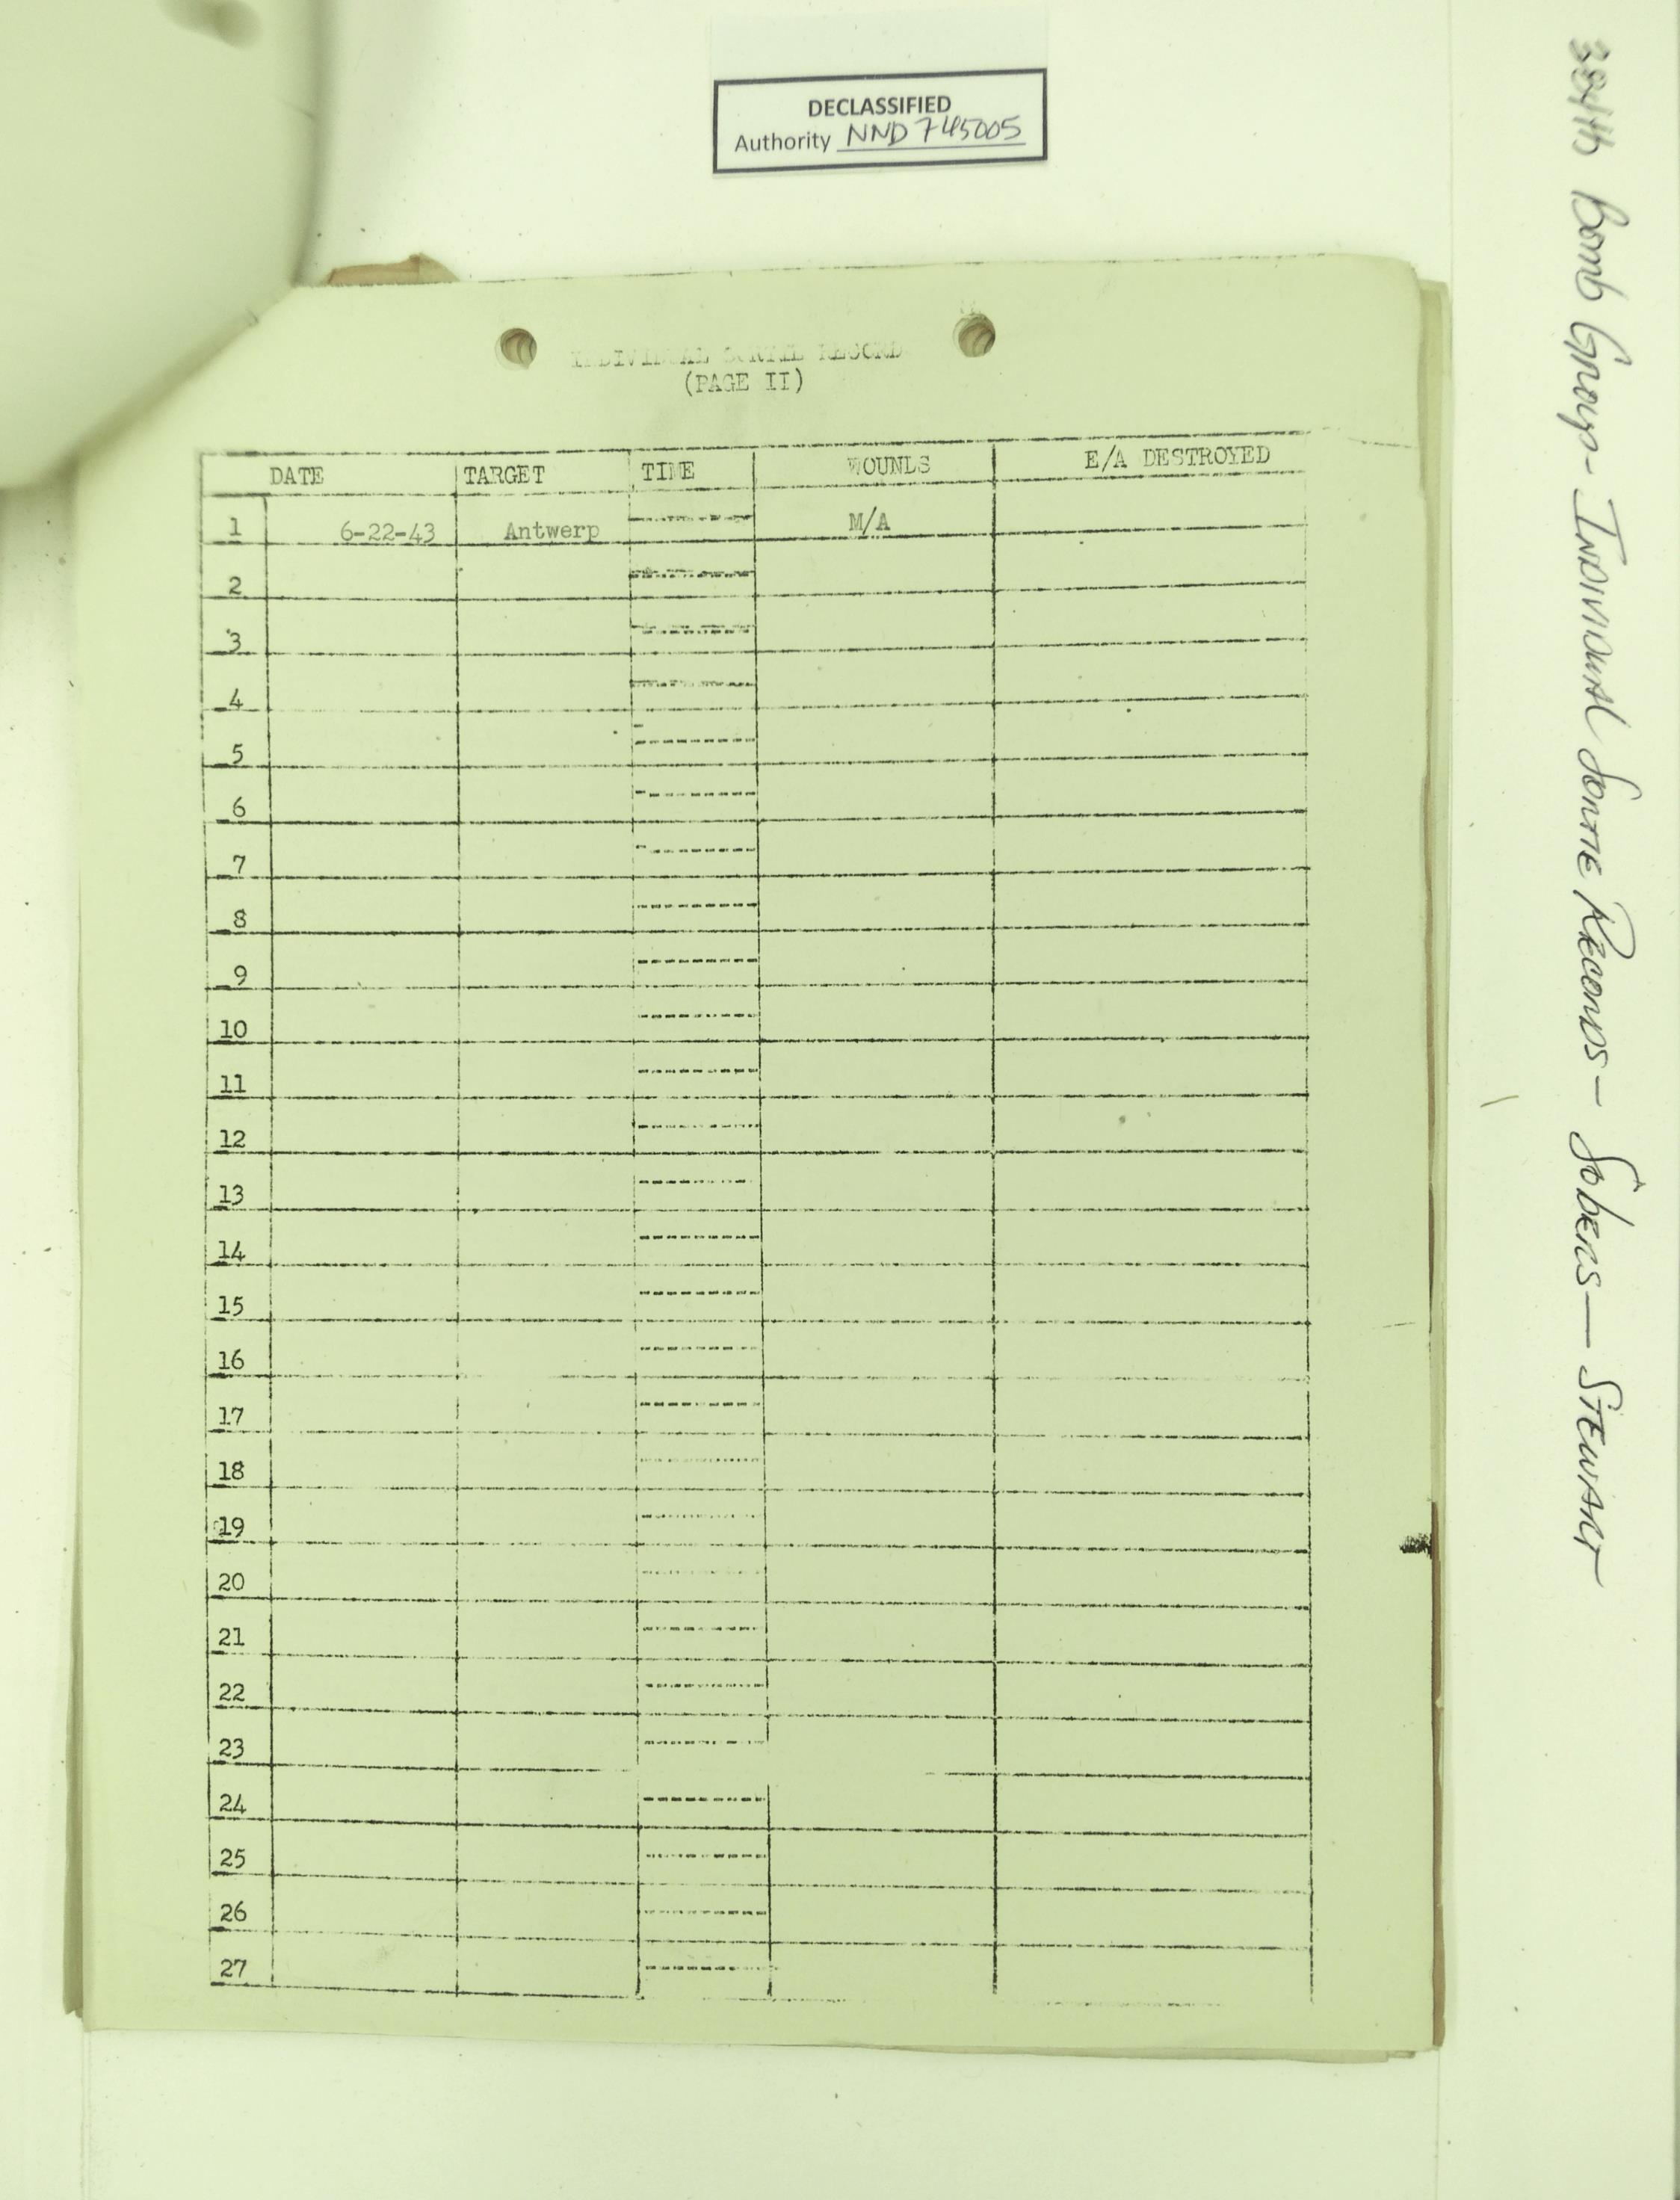 DECLASSIFIED
Authority NND 745005
INDIVIDUAL SORTIE RECORD
(PAGE II)
DATE TARGET TIME WOUNDS E/A DESTROYED
1 6-22-43 Antwerp M/A
2
3
4
5
6
7
8
9
10
11
12
13
14
15
16
17
18
19
20
21
22
23
24
25
26
27
384th Bomb Group - Individual Sortie Records - Sobers - Stewart